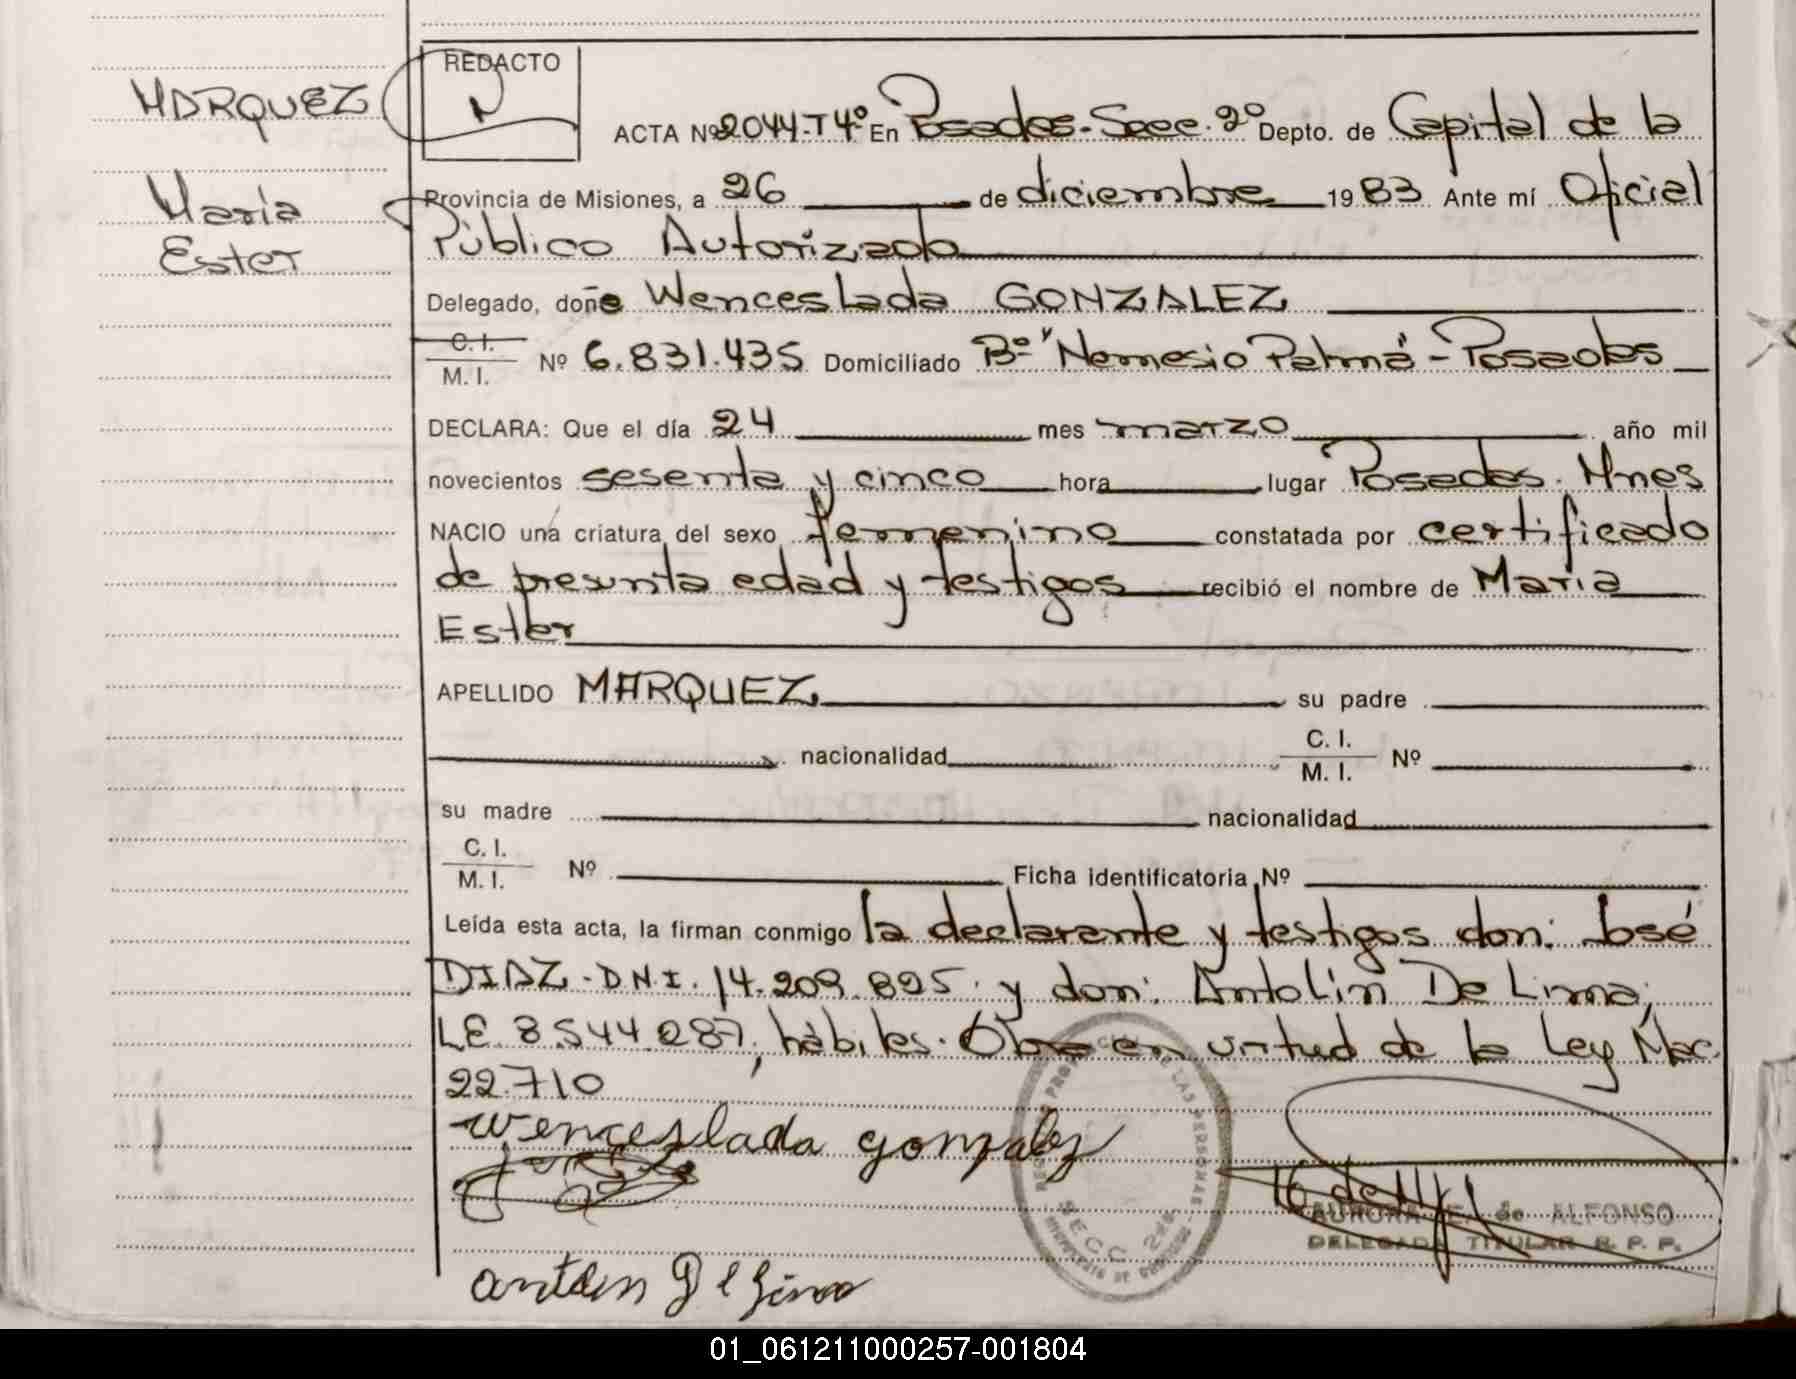 MARQUEZ
María
Ester
REDACTO
ACTA Nº 2044-T 4º En Posadas-Secc. 2º Depto. de Capital de la
Provincia de Misiones, a 26 de diciembre 1983 Ante mí Oficial
Público Autorizado
Delegado, doña Wenceslada GONZALEZ
C. I.
M. I. Nº 6.831.435 Domiciliado Bº "Nemesio Parma" - Posadas
DECLARA: Que el día 24 mes marzo año mil
novecientos sesenta y cinco hora lugar Posadas. Mnes
NACIO una criatura del sexo femenino constatada por certificado
de presunta edad y testigos recibió el nombre de María
Ester
APELLIDO MARQUEZ su padre
nacionalidad C. I. M. I. Nº
su madre nacionalidad
C. I.
M. I. Nº Ficha identificatoria Nº
Leída esta acta, la firman conmigo la declarante y testigos don: José
DIAZ - D.N.I. 14.209.825 y don: Antolín De Lima,
LE 8.544.287, hábiles. Obra en virtud de la Ley Nac.
22.710
Wenceslada gonzalez
AURORA E. de ALFONSO
DELEGADA TITULAR R. P. P.
SECC. 2da.
01_061211000257-001804